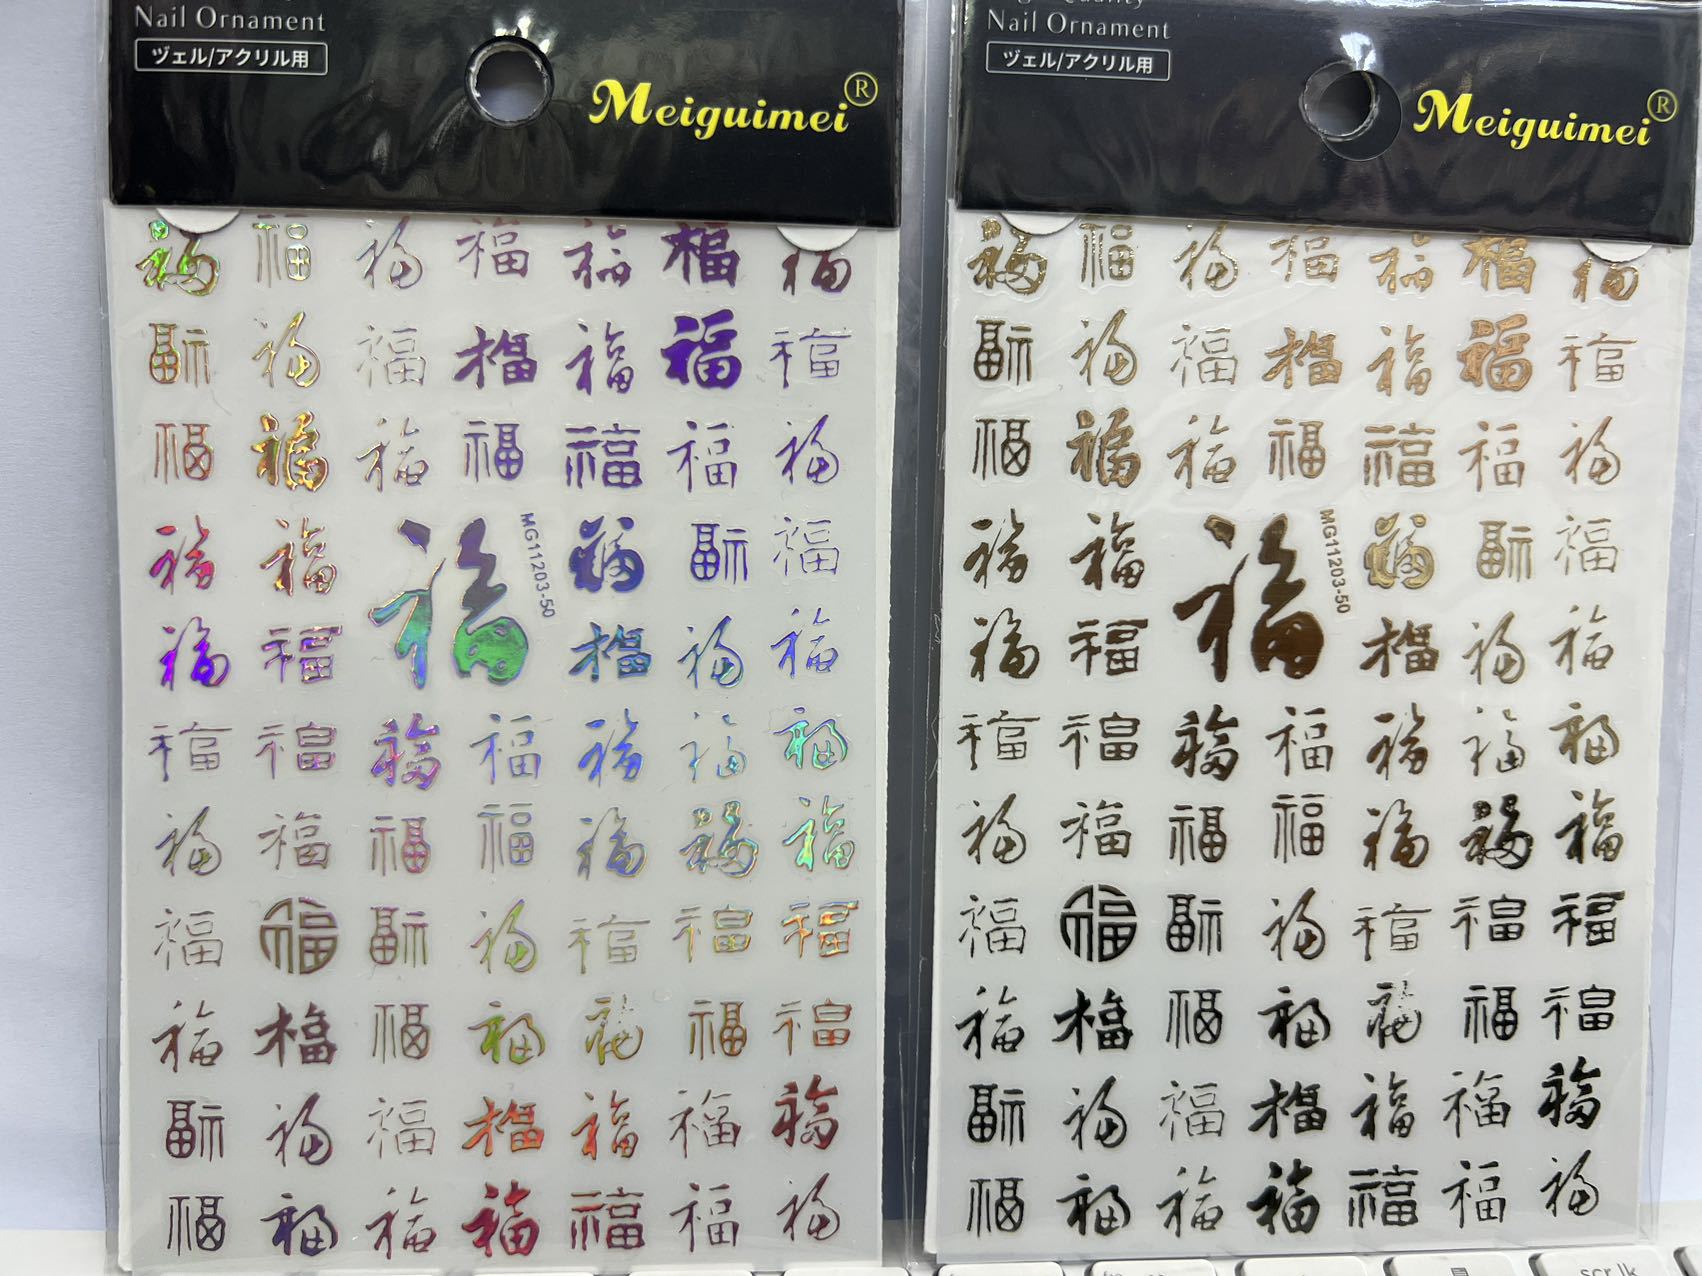 Nail Ornament
ヅェル/アクリル用
Meiguimei®
福 福 福 福 福 福 福
福 福 福 福 福 福 福 福
福 福 福 福 福 福 福
福 福 福 福 福 福
MG11203-50
福 福 福 福 福
福 福 福 福 福 福 福
福 福 福 福 福 福 福
福 福 福 福 福 福 福
福 福 福 福 福 福 福
福 福 福 福 福 福 福
福 福 福 福 福 福 福
Quality
Nail Ornament
ヅェル/アクリル用
Meiguimei®
福 福 福 福 福 福 福
福 福 福 福 福 福 福
福 福 福 福 福 福 福
福 福 福 福 福 福
MG11203-50
福 福 福 福 福
福 福 福 福 福 福 福
福 福 福 福 福 福 福
福 福 福 福 福 福 福
福 福 福 福 福 福 福
福 福 福 福 福 福 福
福 福 福 福 福 福 福
scr lk